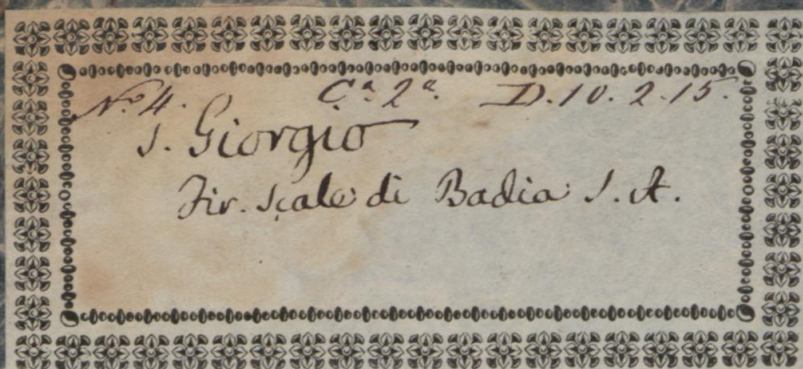 N.o 4. C.a 2.a D. 10. 2. 15.
S. Giorgio
Fir. Scale di Badia S. A.